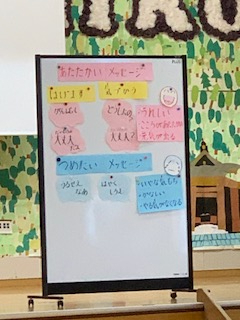 あたたかい メッセージ
はげます
気づかう
がんばれ
どうしたの
大丈夫
だよ
大丈夫？
うれしい
こころが
元気が出る
つめたい メッセージ
うるさい
なあ
はやく
しろよ
いやな気もち
かなしい
やる気がなくなる